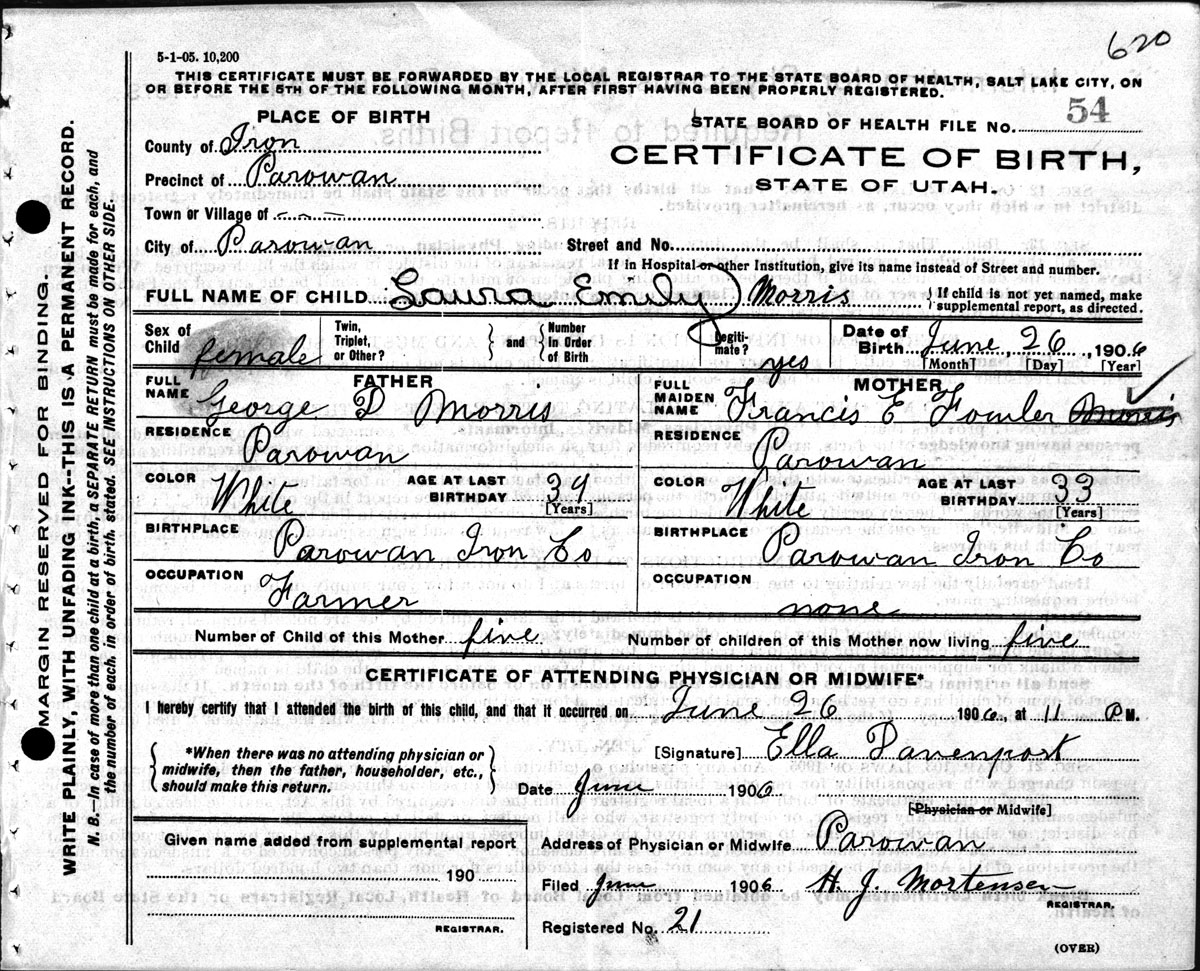 620
5-1-05. 10,200
THIS CERTIFICATE MUST BE FORWARDED BY THE LOCAL REGISTRAR TO THE STATE BOARD OF HEALTH, SALT LAKE CITY, ON
OR BEFORE THE 5TH OF THE FOLLOWING MONTH, AFTER FIRST HAVING BEEN PROPERLY REGISTERED.
PLACE OF BIRTH
STATE BOARD OF HEALTH FILE NO. 54
County of Iron
CERTIFICATE OF BIRTH,
Precinct of Parowan
STATE OF UTAH.
Town or Village of
City of Parowan
Street and No.
If in Hospital or other Institution, give its name instead of Street and number.
FULL NAME OF CHILD Laura Emily Morris
{If child is not yet named, make
supplemental report, as directed.
Sex of Child female
Twin, Triplet, or Other?
} and {
Number In Order of Birth
Legitimate? yes
Date of Birth June, 26, 1906
[Month] [Day] [Year]
FATHER
FULL NAME George D Morris
RESIDENCE Parowan
COLOR White
AGE AT LAST BIRTHDAY 39
[Years]
BIRTHPLACE Parowan Iron Co
OCCUPATION Farmer
MOTHER
FULL MAIDEN NAME Francis E Fowler Morris
RESIDENCE Parowan
COLOR White
AGE AT LAST BIRTHDAY 33
[Years]
BIRTHPLACE Parowan Iron Co
OCCUPATION none
Number of Child of this Mother five
Number of children of this Mother now living five
CERTIFICATE OF ATTENDING PHYSICIAN OR MIDWIFE*
I hereby certify that I attended the birth of this child, and that it occurred on June 26 1906, at 11 P M.
{*When there was no attending physician or
midwife, then the father, householder, etc.,
should make this return.}
[Signature] Ella Davenport
Date June 1906
[Physician or Midwife]
Given name added from supplemental report
190
REGISTRAR.
Address of Physician or Midwife Parowan
Filed June 1906 H. J. Mortensen
REGISTRAR.
Registered No. 21
(OVER)
MARGIN RESERVED FOR BINDING.
WRITE PLAINLY, WITH UNFADING INK--THIS IS A PERMANENT RECORD.
N. B.--In case of more than one child at a birth, a SEPARATE RETURN must be made for each, and
the number of each, in order of birth, stated. SEE INSTRUCTIONS ON OTHER SIDE.